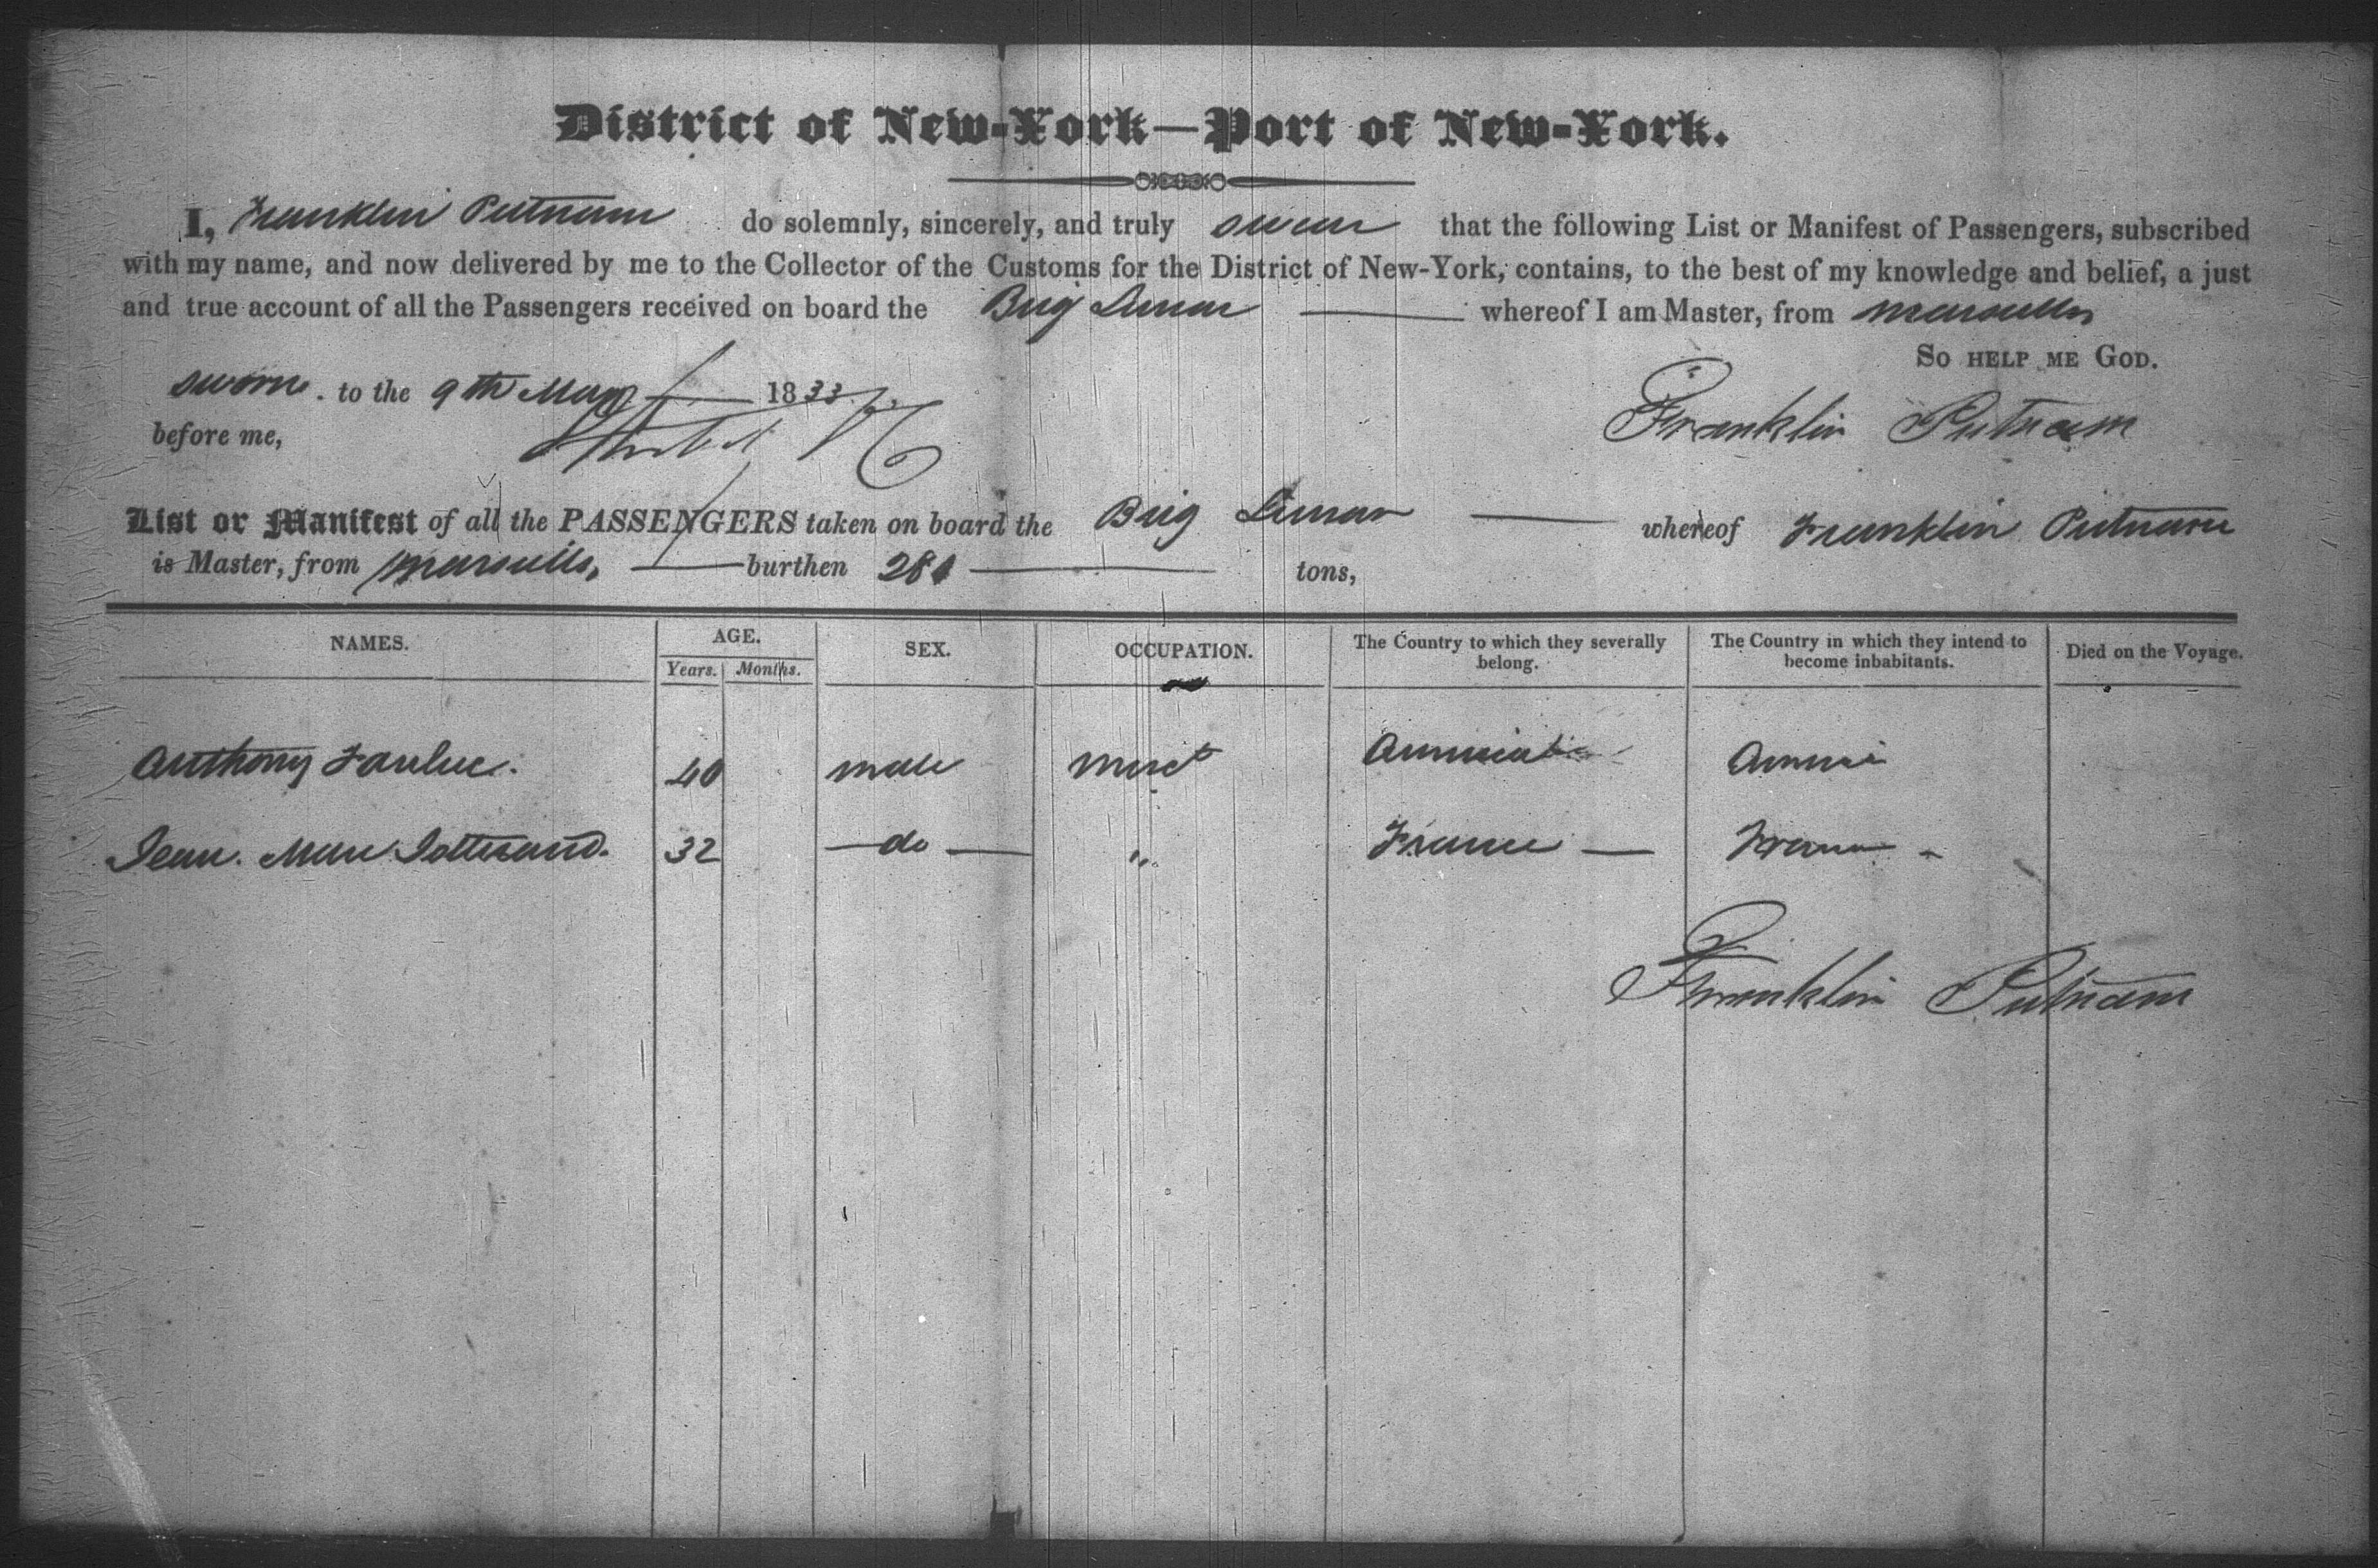 District of New-York—Port of New-York.
I, Franklin Putnam do solemnly, sincerely, and truly swear that the following List or Manifest of Passengers, subscribed
with my name, and now delivered by me to the Collector of the Customs for the District of New-York, contains, to the best of my knowledge and belief, a just
and true account of all the Passengers received on board the Brig whereof I am Master, from Marseilles
So help me God.
sworn to the 9th May 1833
before me,
Franklin Putnam
List or Manifest of all the PASSENGERS taken on board the Brig whereof Franklin Putnam
is Master, from Marseilles, burthen 281 tons,
NAMES. AGE. SEX. OCCUPATION. The Country to which they severally belong. The Country in which they intend to become inhabitants. Died on the Voyage.
Years. Months.
Anthony 40 male Merct America America
Jean 32 do " France France
Franklin Putnam